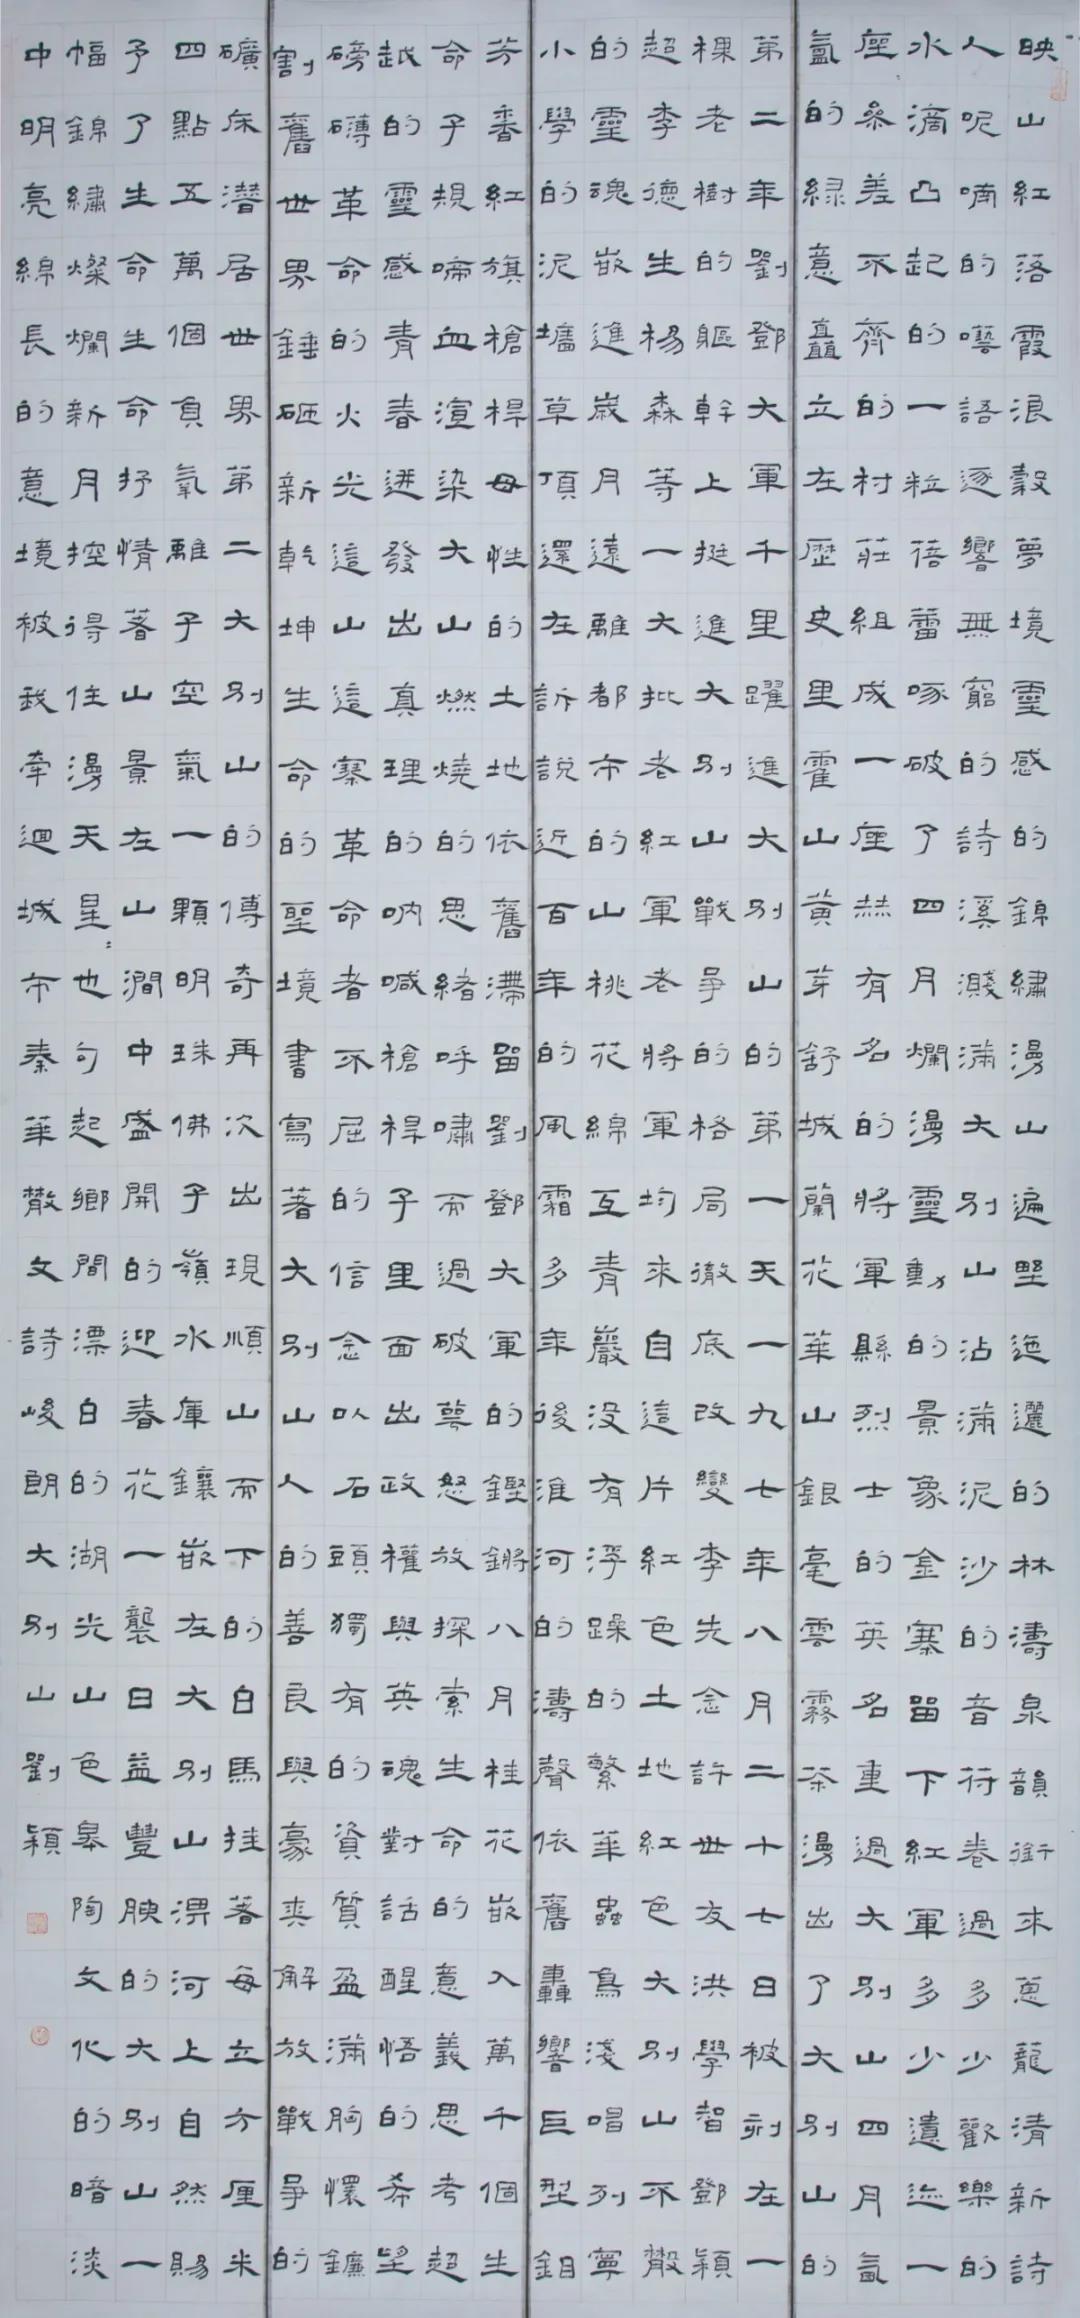 映山紅落霞浪縠夢境靈感的錦繡漫山遍野迤邐的林濤泉韻銜來蔥蘢清新詩
人呢喃的囈語逐響無窮的詩溪濺滿大別山沾滿泥沙的音符卷過多少歡樂的
水滴凸起的一粒蓓蕾啄破了四月爛漫靈動的景象金寨留下紅軍多少遺迹一
座參差不齊的村莊組成一座赫有名的將軍縣烈士的英名重過大別山四月氤
氳的綠意矗立在歷史里霍山黄芽舒城蘭花華山銀毫雲霧茶漫出了大別山的
第二年劉鄧大軍千里躍進大別山的第一天一九七年八月二十七日被刻在一
棵老樹的軀幹上挺進大別山戰爭的格局徹底改變李先念許世友洪學智鄧穎
超李德生楊森等一大批老紅軍老將軍均來自這片紅色土地紅色大別山不散
的靈魂嵌進歲月遠離都市的山桃花綿亙青巖没有浮躁的繁華蟲鳥淺唱列寧
小學的泥墻草頂還在訴説近百年的風霜多年後淮河的濤聲依舊轟響巨型鉬
芳香紅旗槍桿母性的土地依舊滯留劉鄧大軍的鏗鏘八月桂花嵌入萬千個生
命子規啼血渲染大山燃燒的思緒呼嘯而過破萼怒放探索生命的意義思考超
越的靈感青春迸發出真理的吶喊槍桿子里面出政權與英魂對話醒悟的希望
磅礴革命的火光這山這寨革命者不屈的信念以石頭獨有的資質盈滿胸懷鐮
割舊世界錘砸新乾坤生命的聖境書寫著大別山人的善良與豪爽解放戰爭的
礦床潛居世界第二大別山的傳奇再次出現順山而下的白馬挂著每立方厘米
四點五萬個負氧離子空氣一顆明珠佛子嶺水庫鑲嵌在大別山淠河上自然賜
予了生命生命抒情著山景在山澗中盛開的迎春花一襲日益豐腴的大別山一
幅錦繡燦爛新月控得住漫天星〻也勾起鄉間漂白的湖光山色皋陶文化的暗淡
中明亮綿長的意境被我牽迴城市秦華散文詩峻朗大別山劉穎